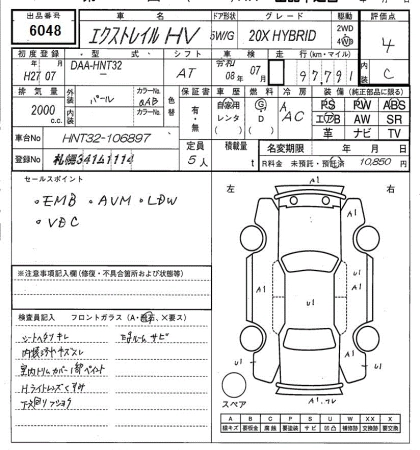 出品番号 車名 ドア形状 グレード 駆動 評価点
6048 エクストレイル HV 5W/G 20X HYBRID 2WD 4WD 4
初度登録 型式 シフト 車検 走行(km・マイル) 内装
H27 年 07 月 DAA-HNT32 AT 08年 07月 97,791 C
排気量 外装 カラーNo. 色替 保証書 車歴 燃料 冷房 装備(純正部品に限る)
2000 c.c. パール QAB 有・無 自家用 レンタ G D A AC PS PW ABS
内装 カラーNo. エアB AW SR
革 ナビ TV
車台No HNT32-106897 定員 積載量 名変期限 年 月 日
登録No 札幌341ム1114 5人 t R料金 未預託・預託済 10,850 円
セールスポイント
・EMB ・AVM ・LDW
・VDC
左 右
A1
A1 A1
U1
A1
U1 U1
A1
スペア
※注意事項記入欄(修復・不具合箇所および状態等)
検査員記入 フロントガラス(A・飛石、×要ス)
シートヘタリ キレ Egルーム サビ
内張ヨゴレ キズ スレ
室内トリムカバー1部ペイント
Hライトレンズくすみ
A B C P S U W X XX X
線キズ 要板金 腐蝕 要塗装 サビ 凹凸 補修跡 交換跡 要交換